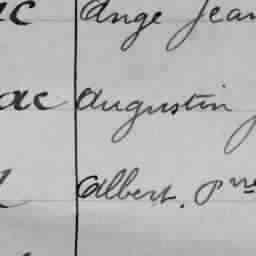 Ange Jean
ac Augustin
Albert. Pre